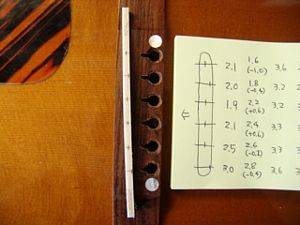 2.1 1.6 3.6
(-1.0)
2.0 1.8 3.2
(-0.4)
1.9 2.2 3.2
(+0.6)
2.1 2.4 3.3
(+0.6)
2.5 2.6 3.3
3.0 2.8 3.6